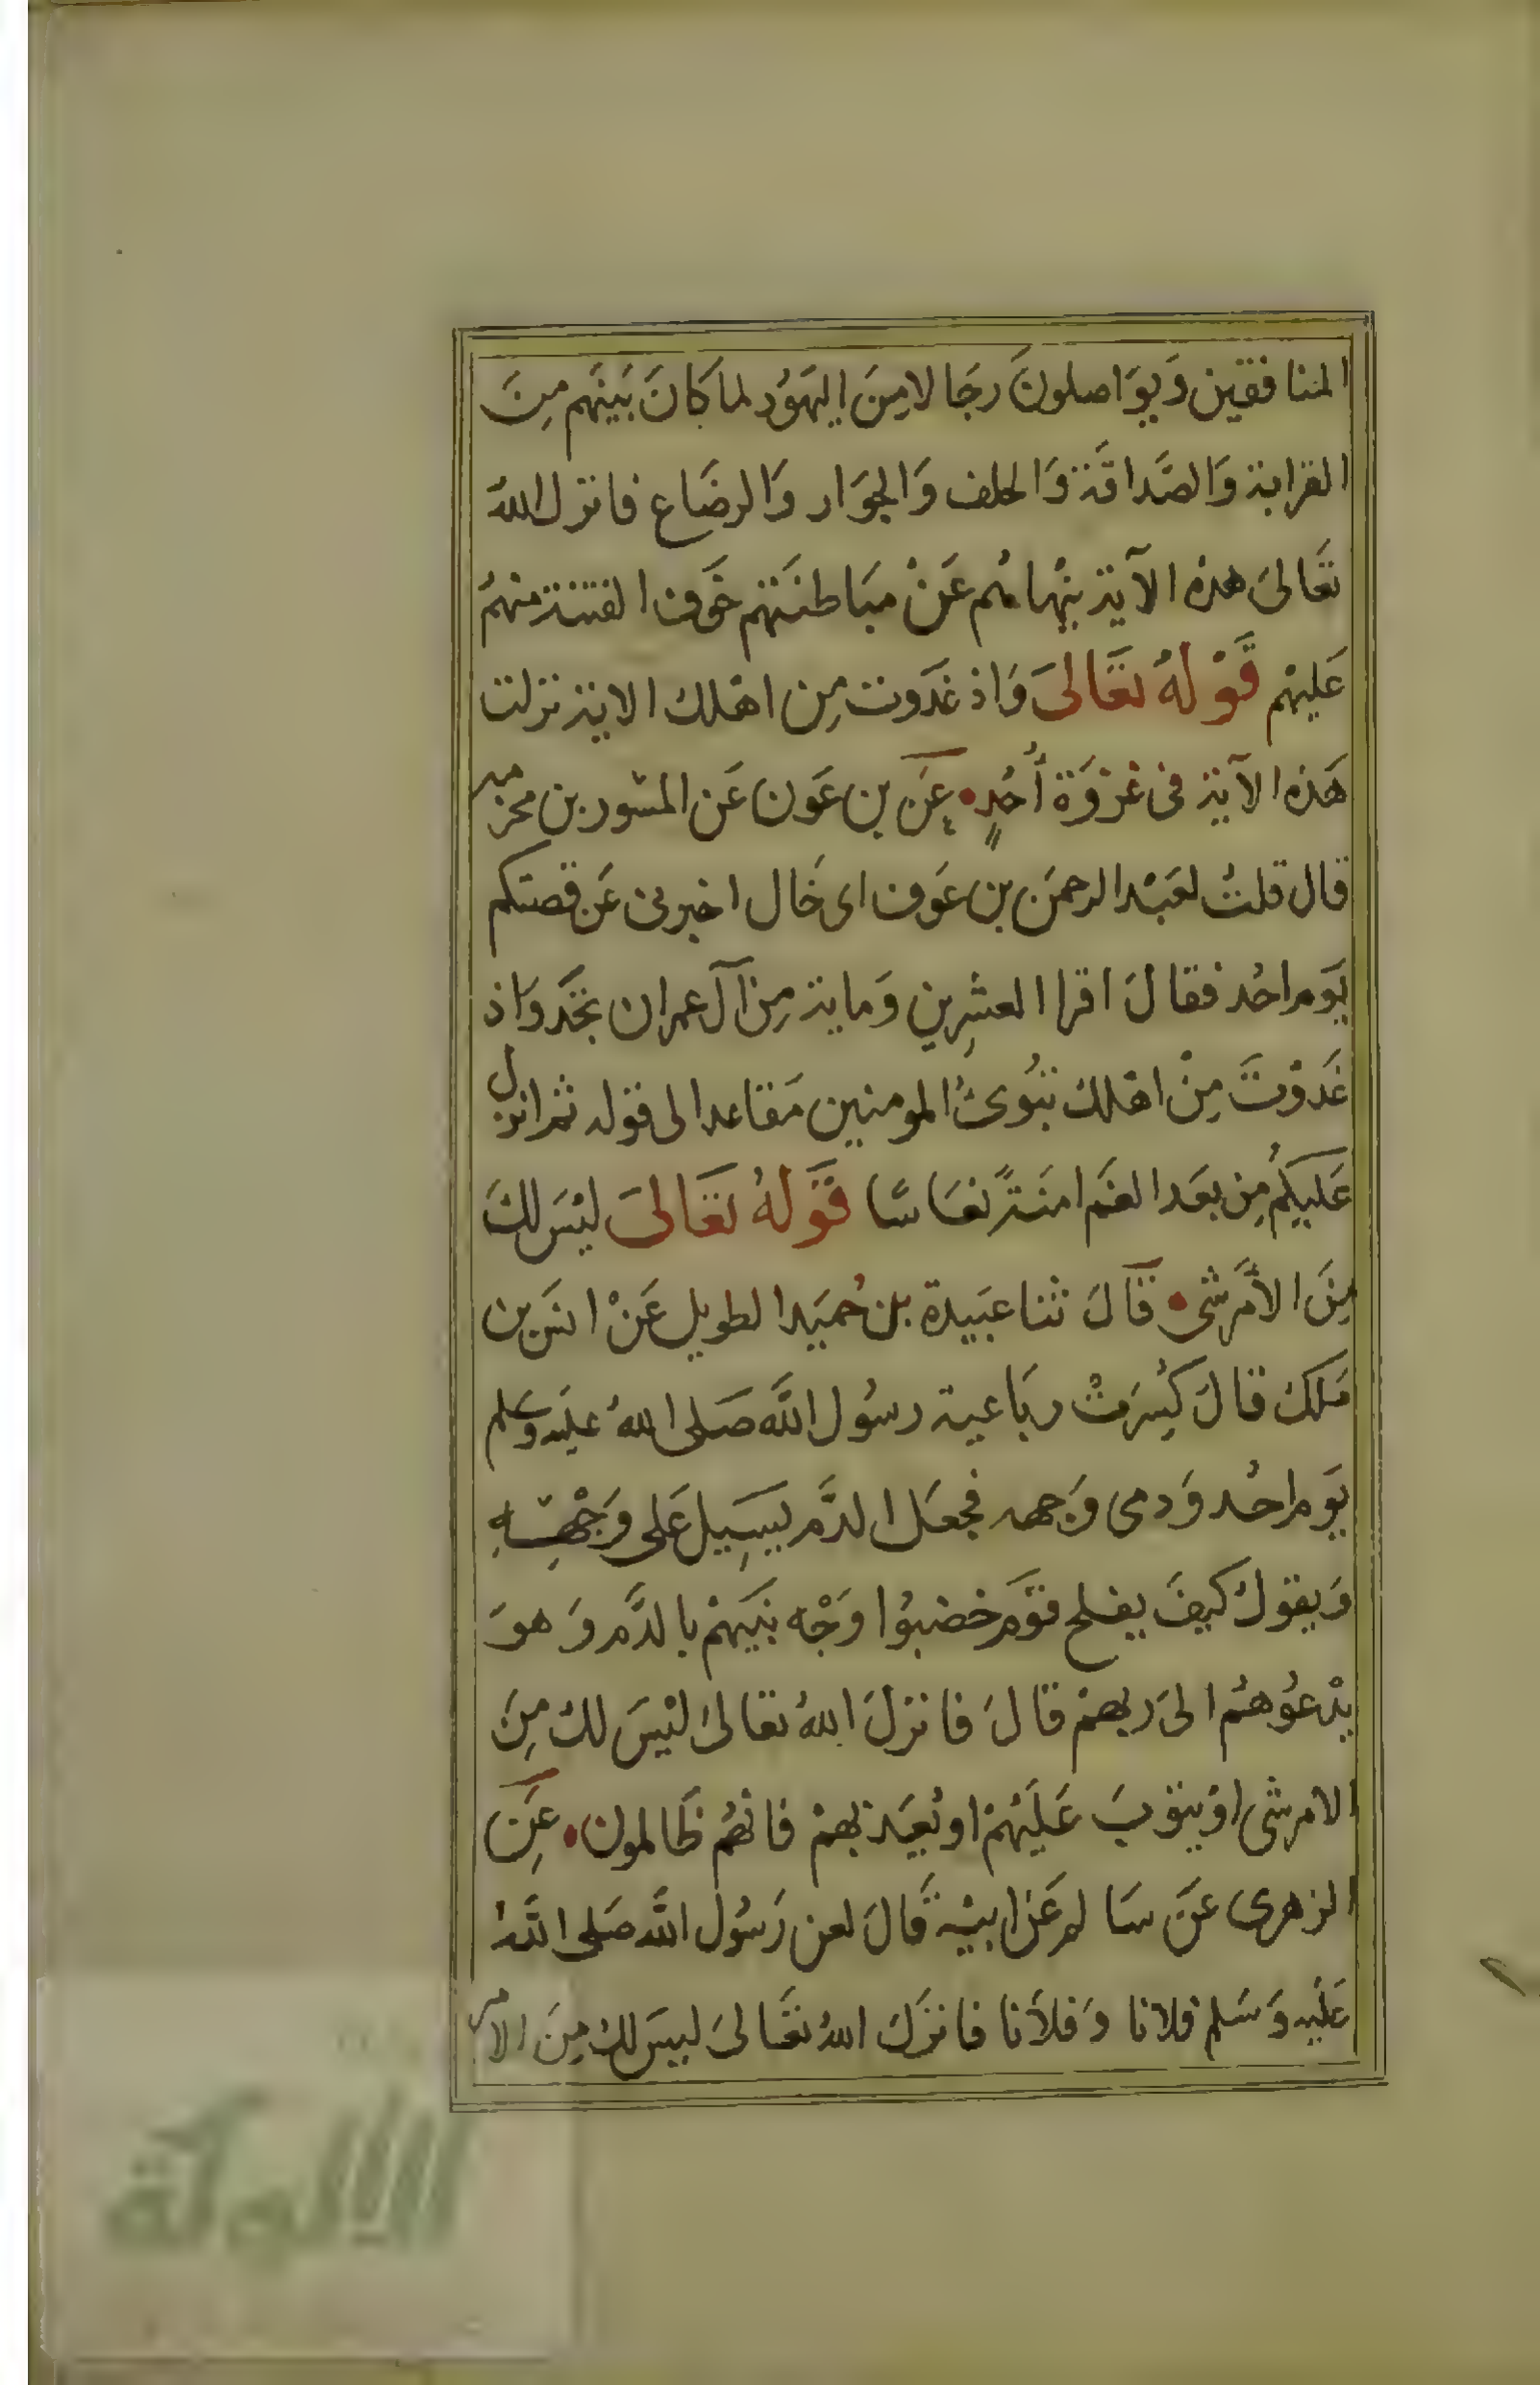 المنافقين وَيوَاصلونَ رجَالا مِنَ اليَهوُد لما كَانَ بَينَهم مِنَ
القرابة وَالصَّداقَة وَالحلف وَالجوَار وَالرضَاع فانزل اللهُ
تعَالىَ هذه الآية ينْهاهُم عَنْ مبَاطنَتهم خَوف الفتنة منهمُ
عَليهْم قَوْلهُ تعَالىَ وَاذ غدَوت مِن اهْلك الاية نزلت
هَذه الآية فى غزوَة أُحُدٍ عَن بن عَون عَن المسْور بن مخرمه
قال قلتُ لعَبْد الرحمَن بن عَوف اى خَال اخبرنى عَن قصتكم
يَوم احُد فقالَ اقرا العشرِين وَماية مِن آل عمران تجَد وَاذ
غَدوْتَ مِنْ اهْلك تبُوىُٔ المومنين مَقاعد الى قوله ثم انزل
عَليكُم مِن بعَد الغَم امنَةً نعَاسًا قَوْلهُ تعَالىَ ليْسَ لكَ
مِنَ الأَمْر شىء قَالَ ثنا عبَيدة بن حُميَد الطويل عَنْ انسَ بن
مَلك قالَ كُسِرَتْ ربَاعية رسُول اللَّه صَلى اللهُ عليَه وسَلم
يَوم احُد وَدمى وَجهه فجعَل الدَّم يسَيِل عَلى وَجْهِهِ
وَيقولُ كيفَ يفلح قوَم خضبوُا وَجْه نبَيهمْ بالدَّم وَ هوَ
يدْعوُهمُ الىَ ربهمْ قالَ فانزلَ اللهُ تعالىَ ليْسَ لكَ مِنَ
الامر شى اوْ يتوبَ عَليَهْمْ او يُعَذبهمْ فانهُم ظَالمون عَن
الزهرى عَنَ سَا لم عَن ابيْه قَالَ لعن رَسُول اللَّه صَلى اللَّهُ
عَليَه وَسَلم فلانا وَفلاَنا فانزَل اللهُ تعَالىَ ليسَ لكَ مِنَ الامر
الألوكة